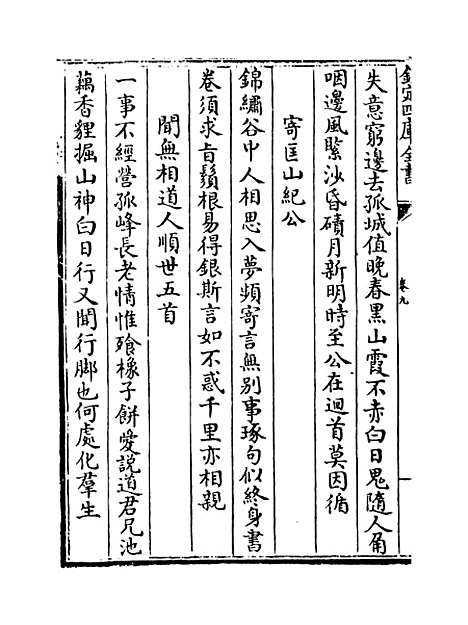 欽定四庫全書
卷九
失意窮邊去孤城值晚春黑山霞不赤白日鬼隨人角
咽邊風緊沙昏磧月新明時至公在迴首莫因循
寄匡山紀公
錦繡谷中人相思入夢頻寄言無別事琢句似終身書
卷須求旨鬚根易得銀斯言如不惑千里亦相親
聞無相道人順世五首
一事不經營孤峰長老情惟飱橡子餅愛説道君兄池
藕香貍掘山神白日行又聞行脚也何處化羣生